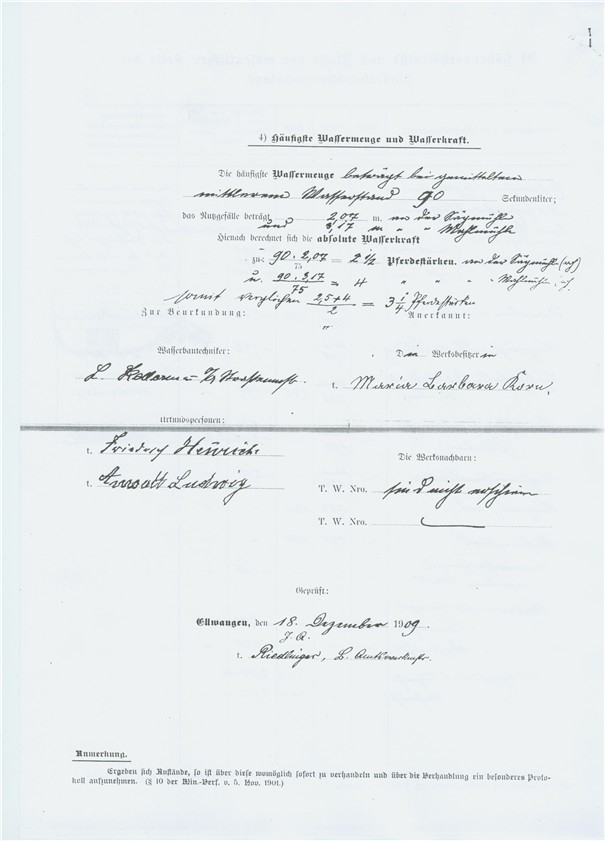 4) Häufigste Wassermenge und Wasserkraft.
Die häufigste Wassermenge beträgt bei gemittelten
mittlerem Wasserstand 90 Sekundenliter;
das Nutzgefälle beträgt 2,07 m. an der Sägmühle
und 3,17 m " " Mahlmühle
Hienach berechnet sich die absolute Wasserkraft
zu: 90 . 2,07 / 75 = 2 1/2 Pferdestärken. an der Sägmühle
u. 90 . 3,17 / 75 = 4 " " " Mahlmühle
somit verglichen 2,5+4 / 2 = 3 1/4 Pferdestärken
Zur Beurkundung:
Anerkannt:
Wasserbautechniker:
Die Werksbesitzerin
t. Maria Barbara Korn.
Urkundspersonen:
t. Friedrich Heinrich
t. Anwalt Ludwig
Die Werksnachbarn:
T. W. Nro. sind nicht erschienen
T. W. Nro.
Geprüft:
Ellwangen, den 18. Dezember 1909.
J. A.
t. Riedlinger,
Anmerkung.
Ergeben sich Anstände, so ist über diese womöglich sofort zu verhandeln und über die Verhandlung ein besonderes Proto-
koll aufzunehmen. (§ 10 der Min.-Verf. v. 5. Nov. 1901.)